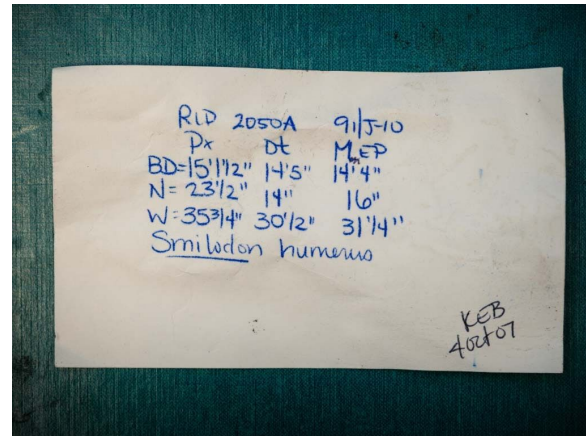 RLP 2050A 91/J-10
Px Dt M.EP
BD=15'1'/2" 14'5" 14'4"
N= 23'/2" 14" 16"
W=35 3/4" 30'/2" 31'/4"
Smilodon humerus
KEB
4 Oct 07